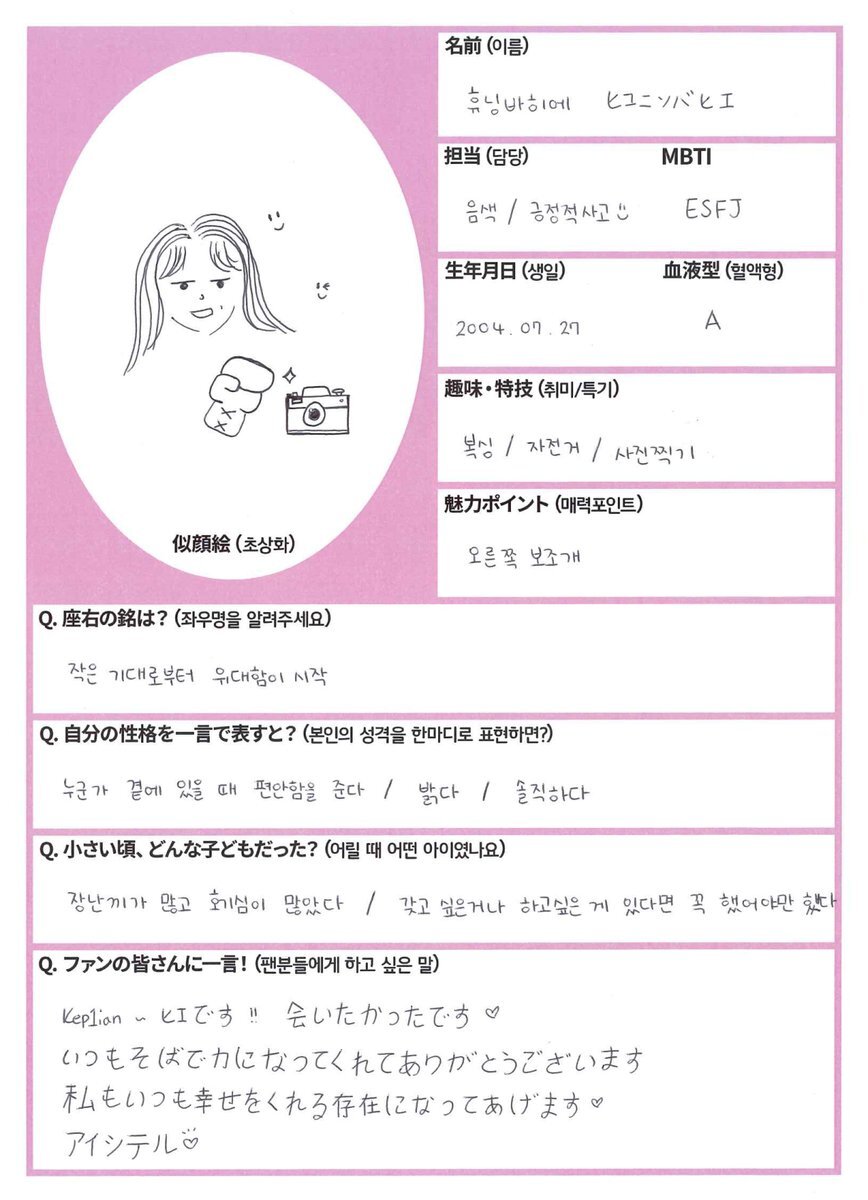 名前 (이름)
휴닝바히에 ヒユニンバヒエ
担当 (담당) MBTI
음색 / 긍정적사고 ESFJ
生年月日 (생일) 血液型 (혈액형)
2004.07.27 A
趣味・特技 (취미/특기)
복싱 / 자전거 / 사진찍기
魅力ポイント (매력포인트)
오른쪽 보조개
似顔絵 (초상화)
Q. 座右の銘は? (좌우명을 알려주세요)
작은 기대로부터 위대함이 시작
Q. 自分の性格を一言で表すと? (본인의 성격을 한마디로 표현하면?)
누군가 곁에 있을 때 편안함을 준다 / 밝다 / 솔직하다
Q. 小さい頃、どんな子どもだった? (어릴 때 어떤 아이였나요)
장난끼가 많고 호기심이 많았다 / 갖고 싶은거나 하고싶은 게 있다면 꼭 했어야만 했다
Q. ファンの皆さんに一言! (팬분들에게 하고 싶은 말)
Kep1ian ~ ヒエです!! 会いたかったです♡
いつもそばで力になってくれてありがとうございます
私もいつも幸せをくれる存在になってあげます♡
アイシテル♡